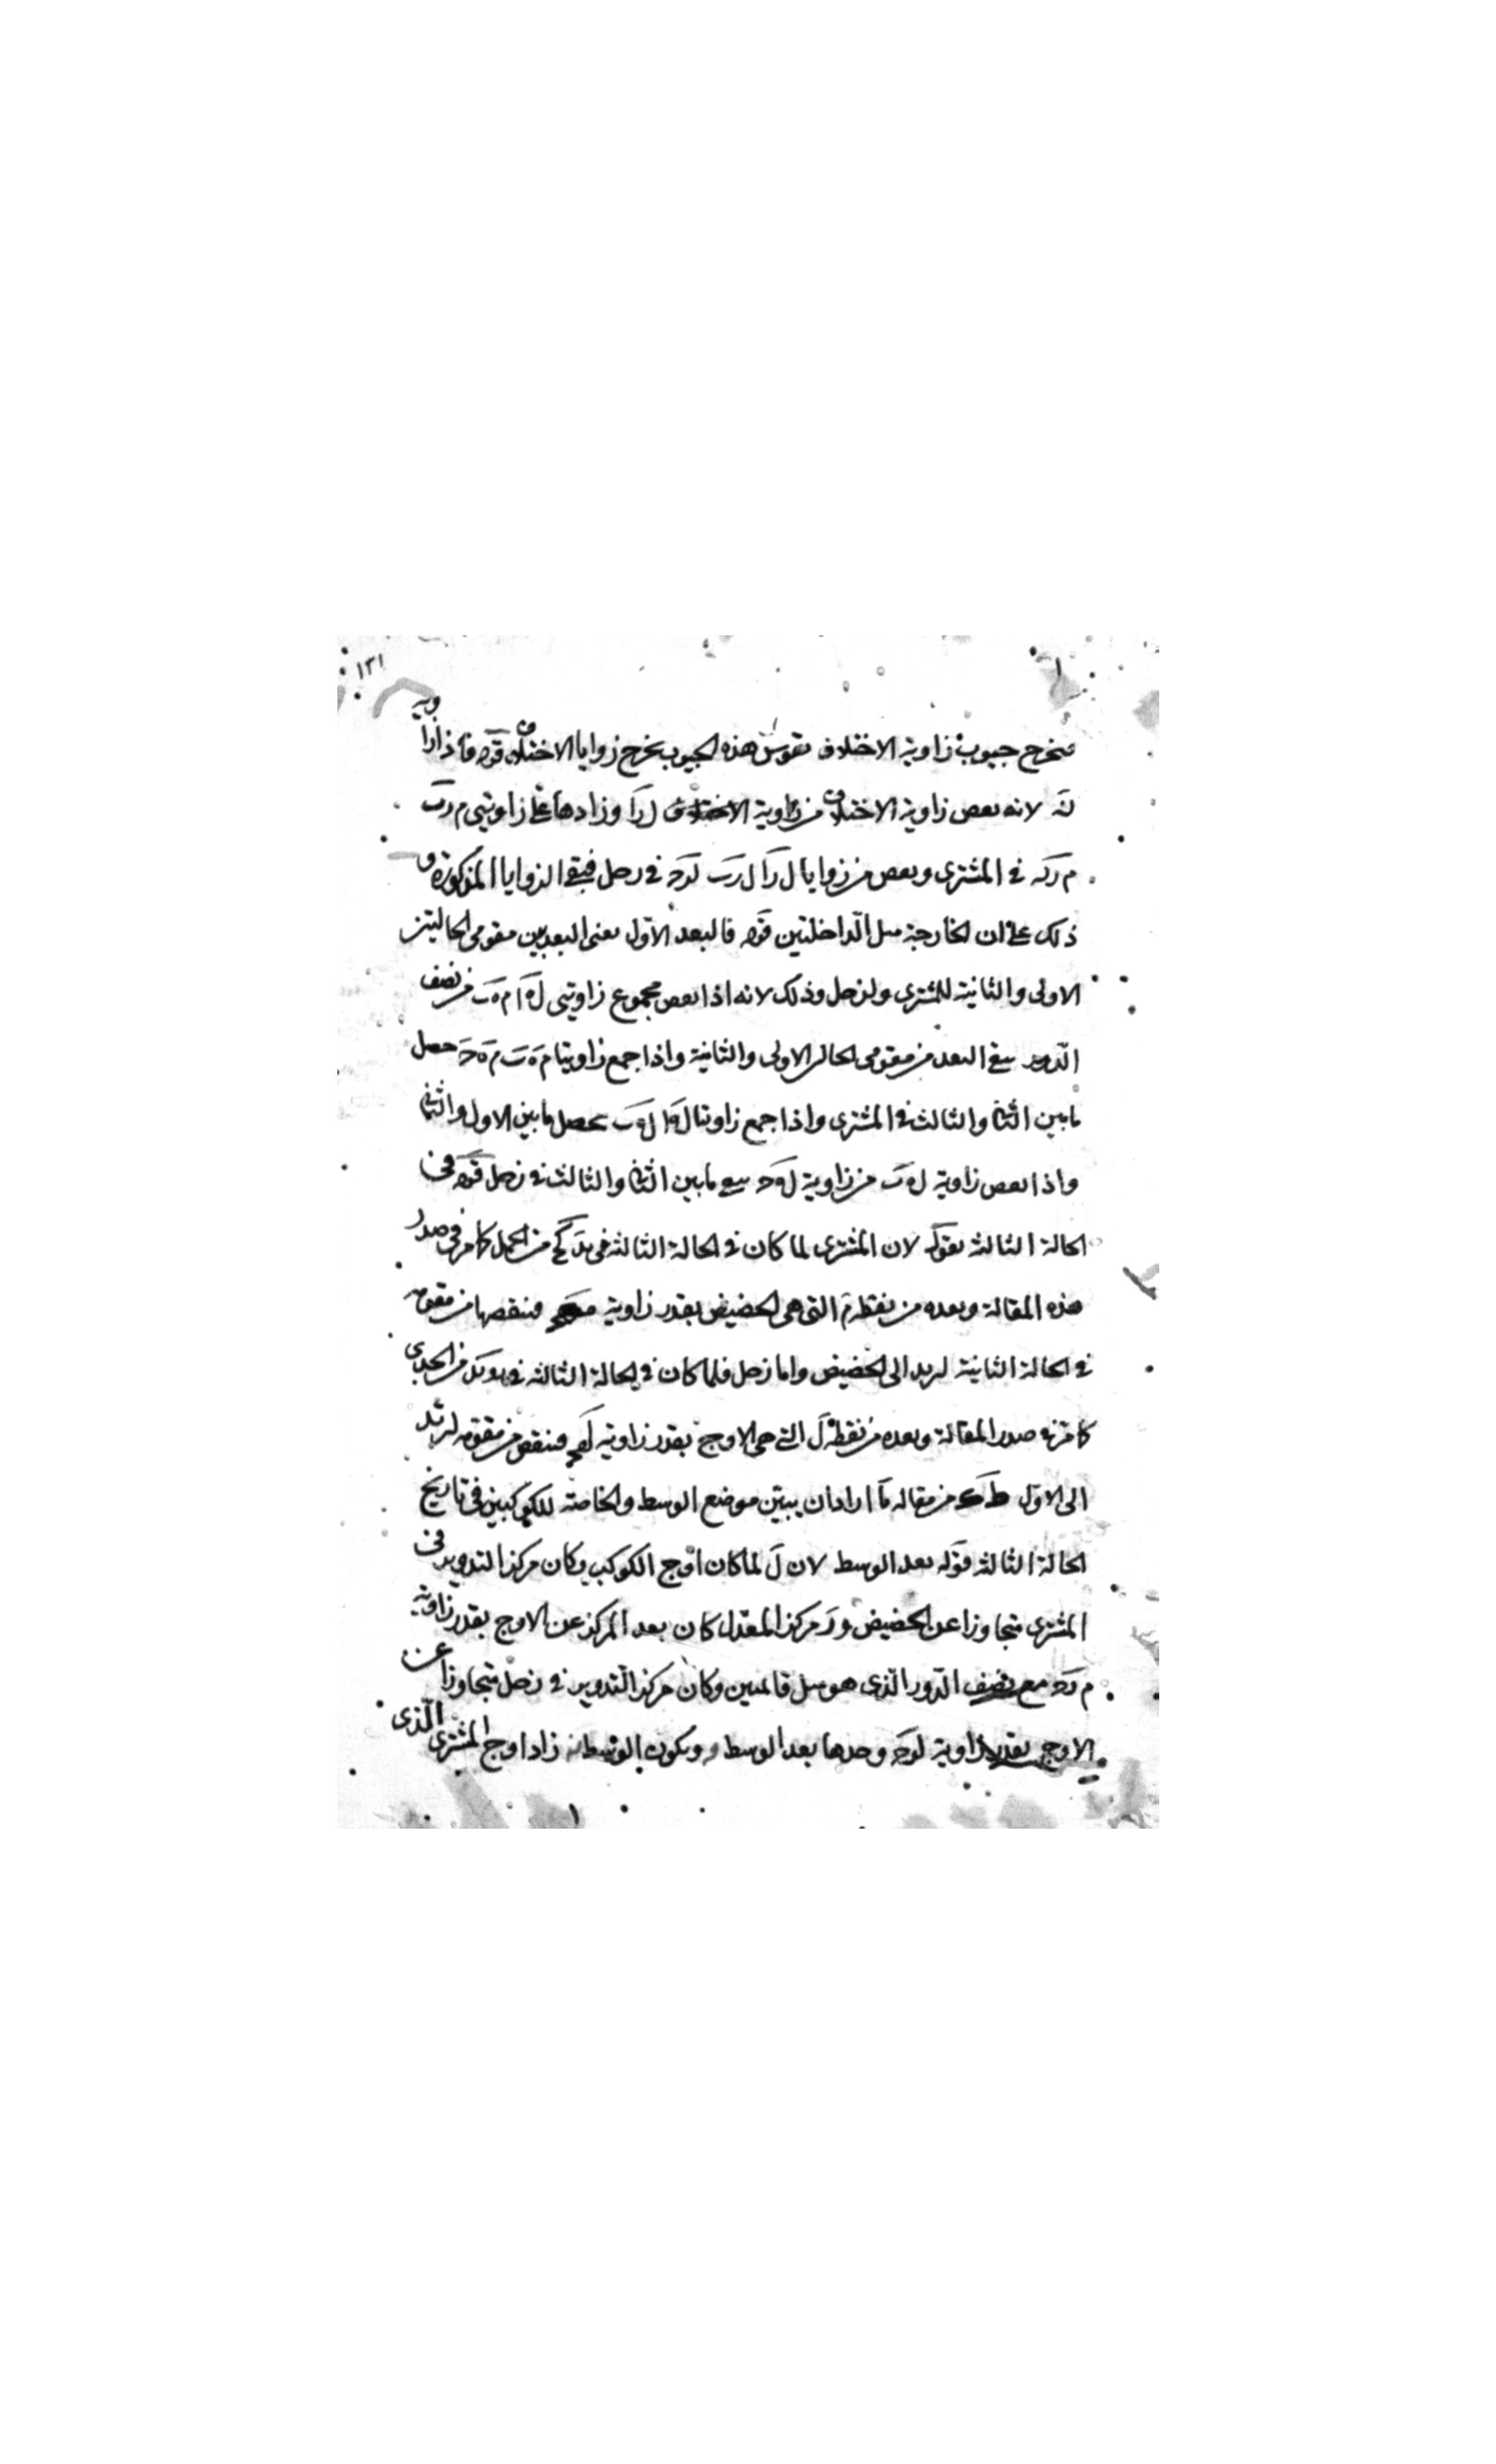 ١٢١
فتخرج جيوب زاوية الاختلاف بقوس هذه الجيوب يخرج زوايا الاختلاف قوله فاذا زاوية
لانه بعض زاوية الاختلاف من زاوية الاختلاف ل ر ا وزادها على زاويتي م ر ب
م ر ح في المشترى وبعص من زوايا ل ر ا ل ر ب ل ر ح في زحل فبقي الزوايا المذكورة
ذلك على ان الخارجة مثل الداخلتين قوله فالبعد الاول يعني البعد بين مقومي الحاليتين
الاولى والثانية للمشترى ولزحل وذلك لانه اذا نعص مجموع زاويتي ل ه ا م ه ب من نصف
الدور بقي البعد من مقومي الحال الاولى والثانية واذا جمع زاويتا م ه ب م ه ح حصل
ما بين الثاني والثالث في المشترى واذا جمع زاويتا ل ه ا ل ه ب حصل ما بين الاول والثاني
واذا نعص زاوية ل ه ب من زاوية ل ه ح بقي ما بين الثاني والثالث في زحل قوله في
الحالة الثالثة لان المشترى لما كان في الحالة الثالثة في من الحمل كما مر في صدر
هذه المقالة وبعده من نقطة م التي هي الحضيض بقدر زاوية فننقصها من مقومه
في الحالة الثانية الى الحضيض واما زحل فلما كان في الحالة الثالثة في من الجدى
كما مر في صدر المقالة وبعده من نقطة ل التي هي الاوج بقدر زاوية فننقص من مقومه
الى الاول من مقاله اراد ان يبين موضع الوسط والخاصة للكوكبين في تاريخ
الحالة الثالثة قوله بعد الوسط لان ل لما كان اوج الكوكب وكان مركز التدوير في
المشترى متجاوزا عن الحضيض و ر مركز المعدل كان بعد المركز عن الاوج بقدر زاوية
م ر ح مع نصف الدور الذى هو مثل قائمتين وكان مركز التدوير في زحل متجاوزا عن
الاوج بقدر زاوية ل ر ح وحدها بعد الوسط ويكون الوسط زاد اوج المشترى الذى